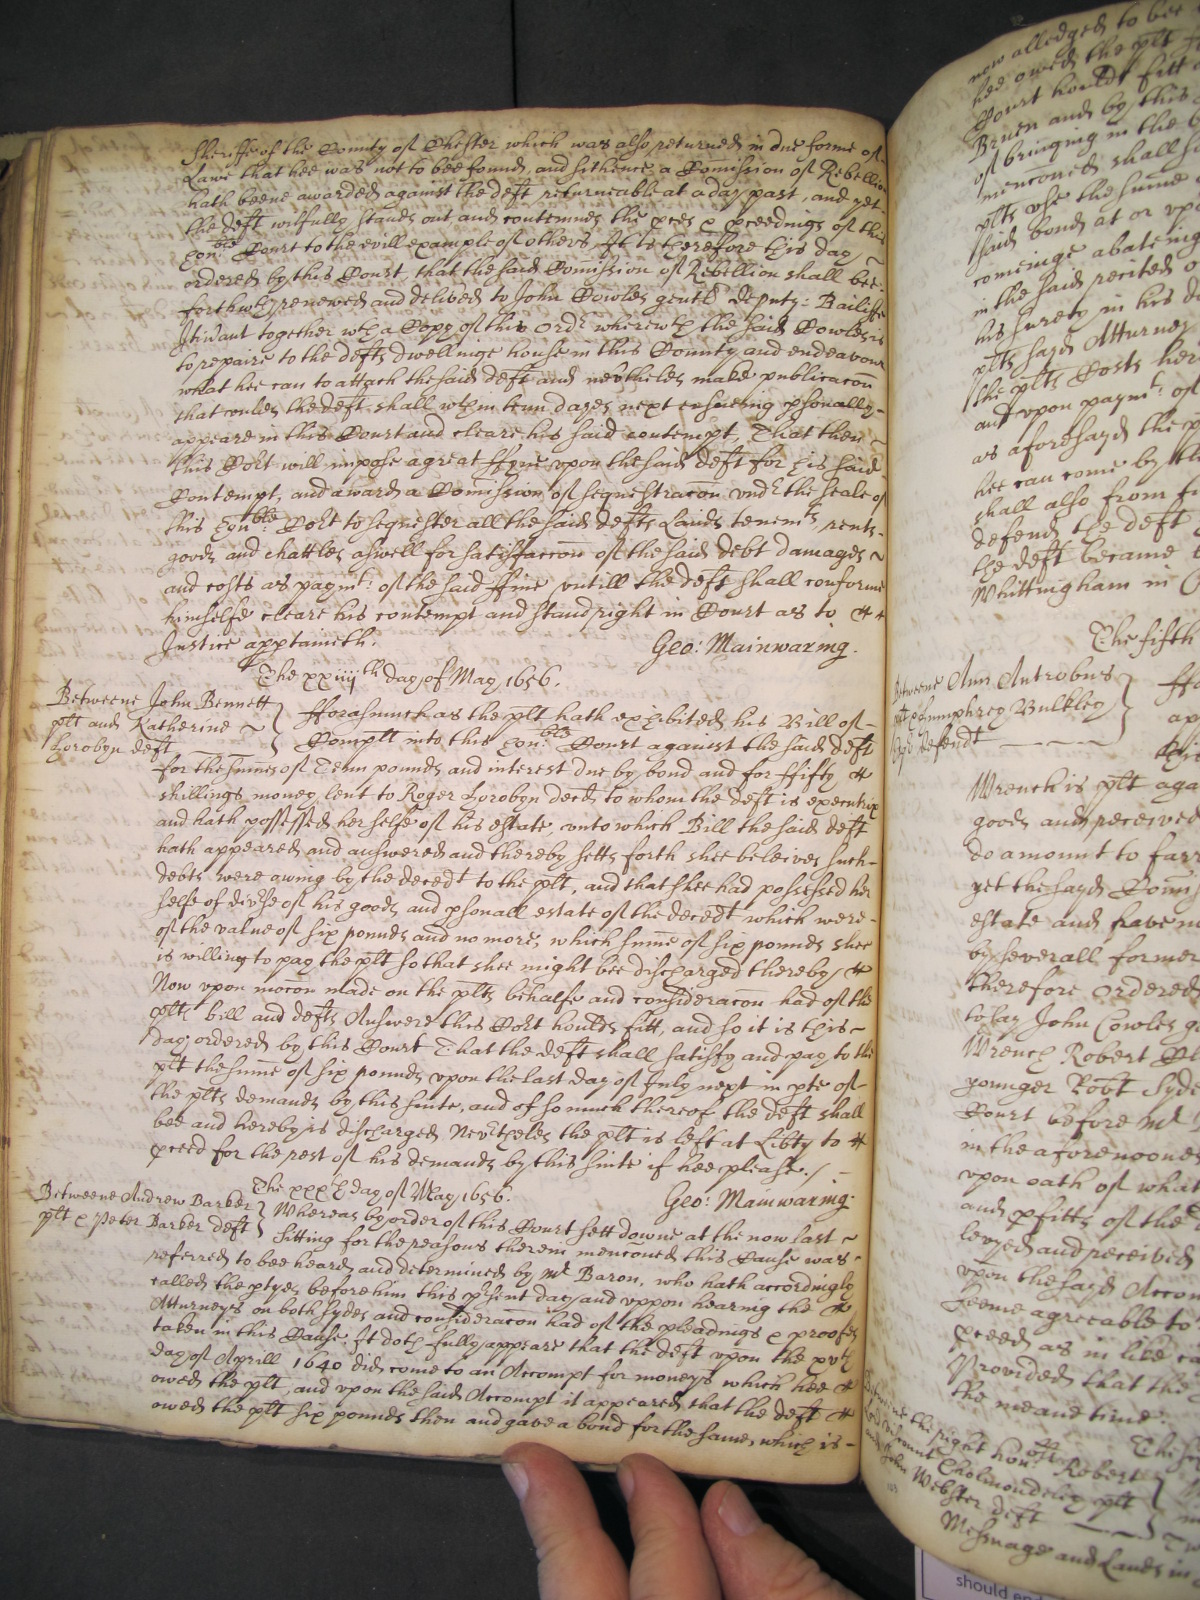 Sheriffe of the County of Chester which was also returned in due forme of
Lawe that hee was not to bee found, and sithence a Comission of Rebellion
hath beene awarded against the deft returneable at a day past, and yet
the deft wilfully stands out and contemnes the pces & pceedings of this
honble Court to the evill example of others, It is therefore this day
ordered by this Court, that the said Comission of Rebellion shall bee
forthwth renewed and delivred to John Cowles gentl deputy Bailiffe
Itin'ant together wth a Copy of this Ordr wherewth the said Cowles is
to repaire to the defts dwellinge house in this County and endeavour
what hee can to attach the said deft and nevrtheles make publicacon
that unles the deft shall wthin tenn dayes next ensueing psonally
appeare in this Court and cleare his said contempt, That then
this Cort will impose a great ffyne upon the said deft for his said
Contempt, and award a Comission of sequestracon undr the seale of
this honble Cort to sequester all the said defts Lands tenemts rents
goods and chattles aswell for satisfaccon of the said debt damages
and costs as paymt of the said ffine untill the deft shall conforme
himselfe cleare his contempt and stand right in Court as to
Justice apptaineth. Geo: Mainwaring.
The xxiiijth day of May 1656.
Betweene John Bennett
plt and Katherine
Horobyn deft
fforasmuch as the plt hath exhibited his Bill of
Complt into this honble Court against the said deft
for the sume of Tenn pounds and interest due by bond and for ffifty
shillings money lent to Roger Horobyn decd to whom the deft is executrix
and hath possessed her selfe of his estate, unto which Bill the said deft
hath appeared and answered and thereby setts forth shee beleives such
debts were owing by the decedt to the plt, and that shee had possessed her
selfe of divrse of his goods and psonall estate of the decedt which were
of the value of six pounds and no more, which sume of six pounds shee
is willing to pay the plt so that shee might bee discharged thereby
Now upon mocon made on the plts behalfe and consideracon had of the
plts bill and defts Answere this Cort houlds fitt, and so it is this
day ordered by this Court That the deft shall satisfy and pay to the
plt the sume of six pounds upon the last day of July next in pte of
the plts demands by this suite, and of so much thereof the deft shall
bee and hereby is discharged Nevrtheles the plt is left at Libty to
pceed for the rest of his demands by this suite if hee please.
Geo: Mainwaring.
The xxxth day of May 1656.
Betweene Andrew Barber
plt & Peter Barber deft
Whereas by order of this Court sett downe at the now last
sitting for the reasons therein menconed this Cause was
referred to bee heard and determined by Mr Baron, who hath accordingly
called the ptyes before him this prsent day and uppon hearing the
Atturneys on both sydes and consideracon had of the pleadings & proofes
taken in this Cause. It doth fully appeare that the deft upon the
day of Aprill 1640 did come to an Accompt for moneys which hee
owed the plt, and upon the said Accompt it appeared that the deft
owed the plt six pounds then and gave a bond for the same, which is
now alledged to bee
hee owed the plt
Court houldt fitt
Bruen and by this
of bringing in the
mencioned shall
plts use the sume
said bond at or upo
comeinge abateing
in the said recited
his surety in his
plts sayd Atturney
the plts Costs
and upon paymt of
as aforesayd the
hee can come by
shall also from
defend the deft
the deft became
Whittingham in
The fifth
Betweene Ann Antrobus
plt & Humphrey Bulkley
defendt
Wrench is plt aga
goods and perceived
do amount to
yet the sayd
estate and have
by severall former
therefore Ordered
to say John Cowles
Wrench Robert
younger Robt Syde
Court before Mr
in the aforenoone
upon oath of what
and pfitts of the
levyed and received
upon the sayd Accom
seeme agreeable to
pceed as in like
Provided that the
the meane time.
the right honble Robert
Lord viscount Cholmondeley plt
and John Webster deft
Messuage and Lands in
should